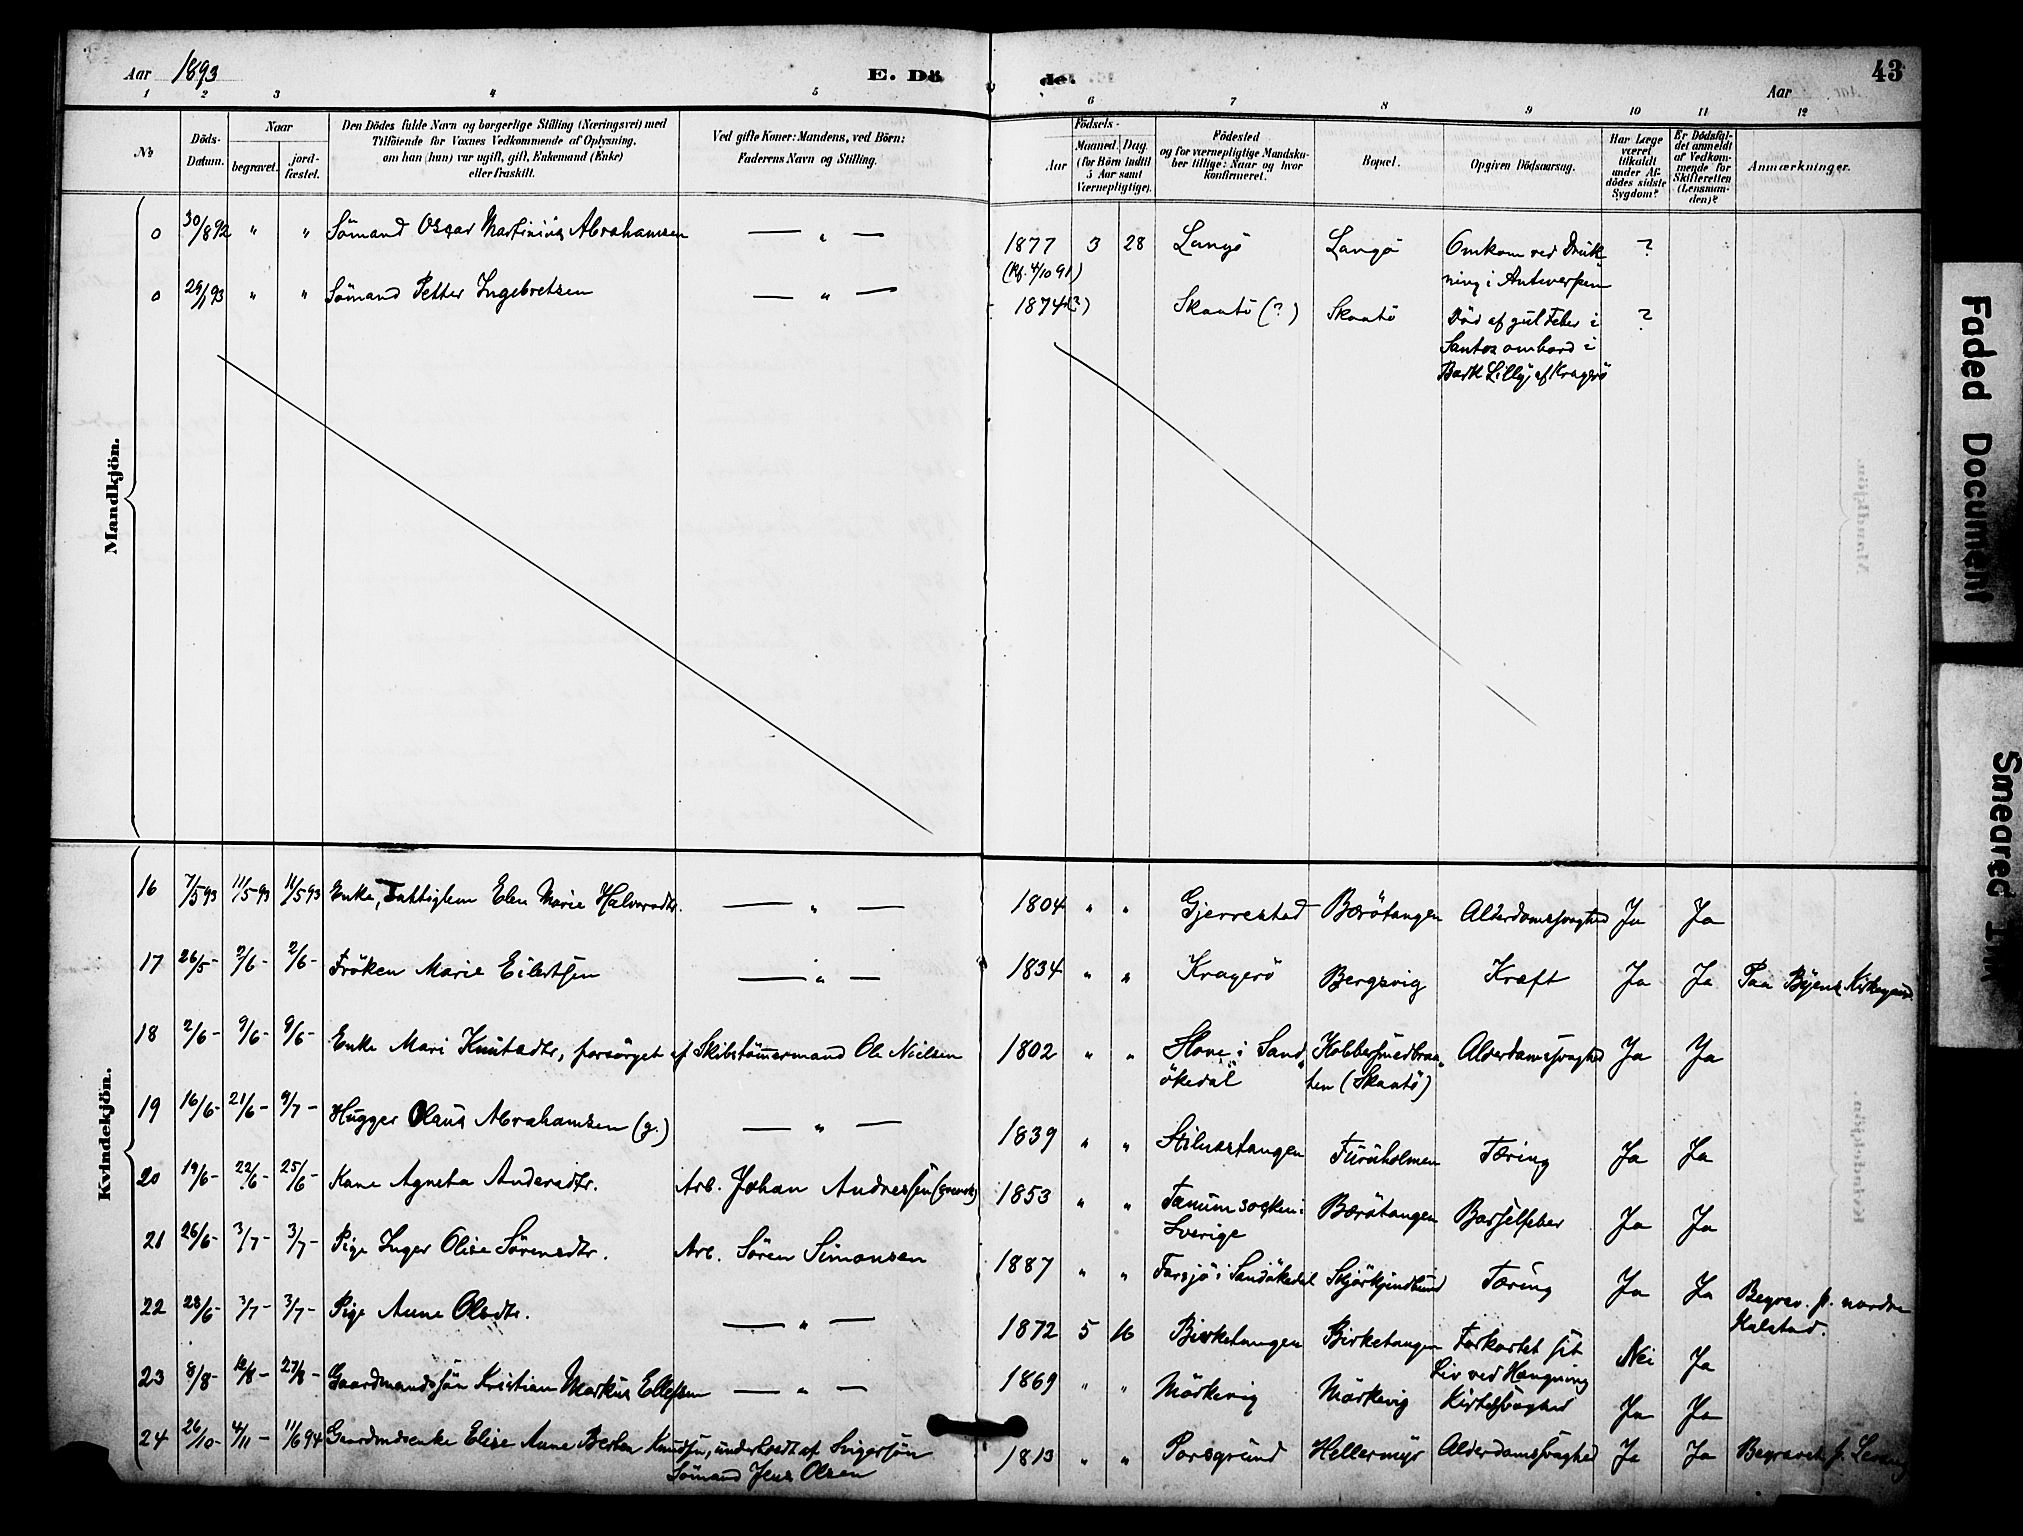 Aar 1893
E. Dö
de.
Aar
43
1 2 3 4 5 6 7 8 9 10 11 12
No
Döds-Datum.
Naar
begravet.
jord-fæstet.
Den Dödes fulde Navn og borgerlige Stilling (Næringsvei) med
Tilföiende for Voxnes Vedkommende af Oplysning,
om han (hun) var ugift, gift, Enkemand (Enke)
eller fraskilt.
Ved gifte Koner: Mandens, ved Börn:
Faderens Navn og Stilling.
Födsels-
Aar
Maaned. Dag
(for Börn indtil
5 Aar samt
Værnepligtige).
Födested
og for værnepligtige Mandska-
ber tillige: Naar og hvor
konfirmeret.
Bopæl.
Opgiven Dödsaarsag.
Har Læge
været
tilkaldt
under Af-
dödes sidste
Sygdom?
Er Dödsfal-
det anmeldt
af Vedkom-
mende for
Skifteretten
(Lensman-
den)?
Anmærkninger.
Mandkjön.
0 30/8 92 " " Sömand Oscar Martinius Abrahamsen — " — 1877 3 28 Langö Langö Omkom ved Druk- ?
(Kf. 4/10 91) ning i Antwerpen
0 29/1 93 " " Sömand Petter Ingebretsen — " — 1874 (?) Skaatö (?) Skaatö Död af gul Feber i ?
Santos ombord i
Bark Lilly af Kragerö
Kvindekjön.
16 7/5 93 11/5 93 11/5 93 Enke, Fattiglem Elen Marie Halvorsdtr. — " — 1804 " " Gjerrestad Berötangen Alderdomssvaghed Ja Ja
17 26/5 - 2/6 - 2/6 - Fröken Marie Eilertsen — " — 1834 " " Kragerö Bergsvig Kræft Ja Ja Paa Byens Kirkegaard
18 2/6 - 9/6 - 9/6 - Enke Mari Knutsdtr, forsörget af Skibstömmermand Ole Nielsen 1802 " " Hove i Sand Kobbersmedbraa Alderdomssvaghed Ja Ja
ökedal ten (Skaatö)
19 16/6 - 21/6 - 9/7 - Hugger Olaus Abrahamsen (g.) — " — 1839 " " Stilnestangen Furuholmen Tæring Ja Ja
20 19/6 - 22/6 - 25/6 - Kone Agneta Andersdtr. Arb. Johan Andressen (svensk) 1853 " " Tanum socken i Berötangen Barselfeber Ja Ja
Sverige
21 26/6 - 3/7 - 3/7 - Pige Inger Olise Sörensdtr. Arb. Sören Simonsen 1887 " " Farsjö i Sandökedal Tæring Ja Ja
22 28/6 - 3/7 - 3/7 - Pige Anne Olsdtr. — " — 1872 5 16 Birketangen Birketangen Forkortet sit Nei Ja Begrav. p. nordre
Liv ved Hængning Kalstad.
23 8/8 - 12/8 - 27/8 - Gaardmandssön Kristian Markus Ellefsen — " — 1869 " " Mörkevig Mörkevig Kirtelsvaghed Ja Ja
24 26/10 - 4/11 - 11/6 94 Gaardmdsenke Elise Anne Berthea Knudsen, underholdt af Svigersön 1813 " " Porsgrund Hellermyr Alderdomssvaghed Ja Ja Begravet p. Levang
Sömand Jens Olsen
Faded Document
Smeared Ink